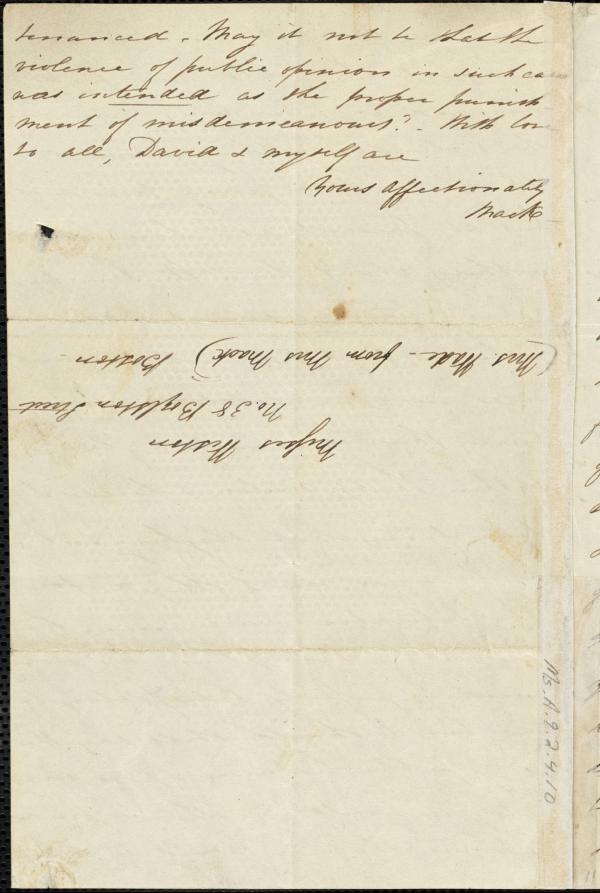 tenanced. May it not be that the
violence of public opinion in such ca
was intended as the proper punish
ment of misdemeanours? - With love
to all, David & myself are
Yours affectionately
Mack
Misses Weston
No. 38 Boylston Street
Boston -
(Mrs. Wade - from Mrs Mack)
Ms.A.9.2.4.10